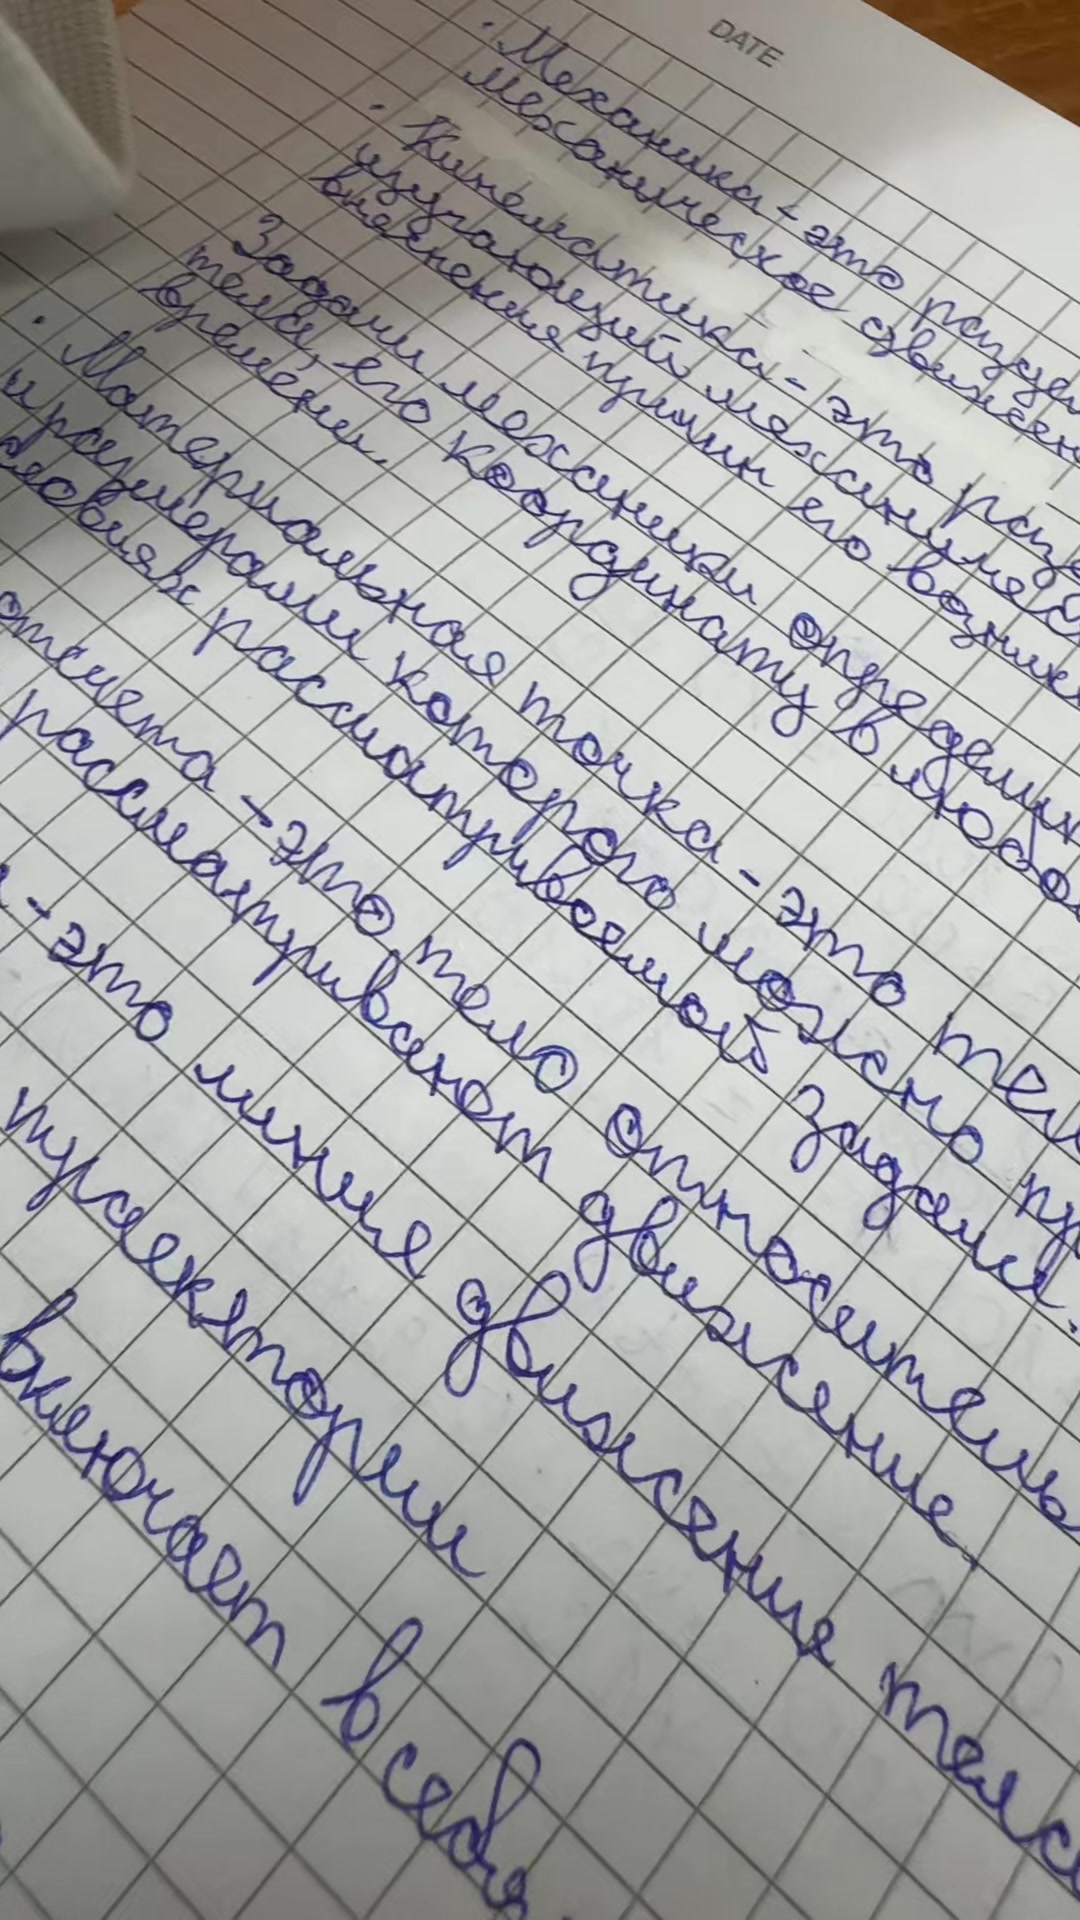 DATE
· Механика - это раздел
механическое движен
· Кинематика - это разде
изучающий механическ
выяснения причин его возник
Задачи механики определить
тела, его координату в любо
времени.
· Материальная точка - это тел
и размерами которого можно пр
рассматриваемой задачи.
отсчета - это тело относитель
рассматривают движение.
- это линия движение тела
траектории
включает в себя